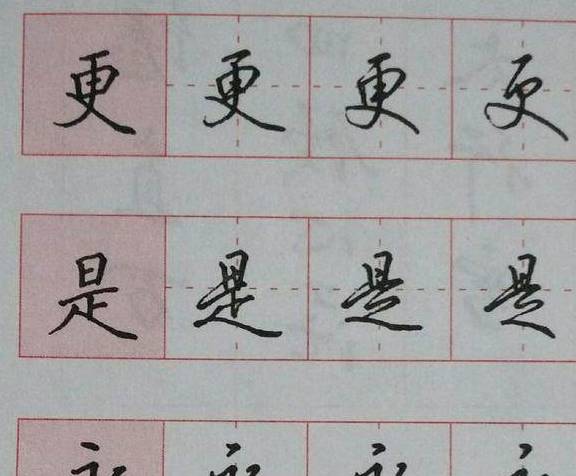 更更更更
是是是是